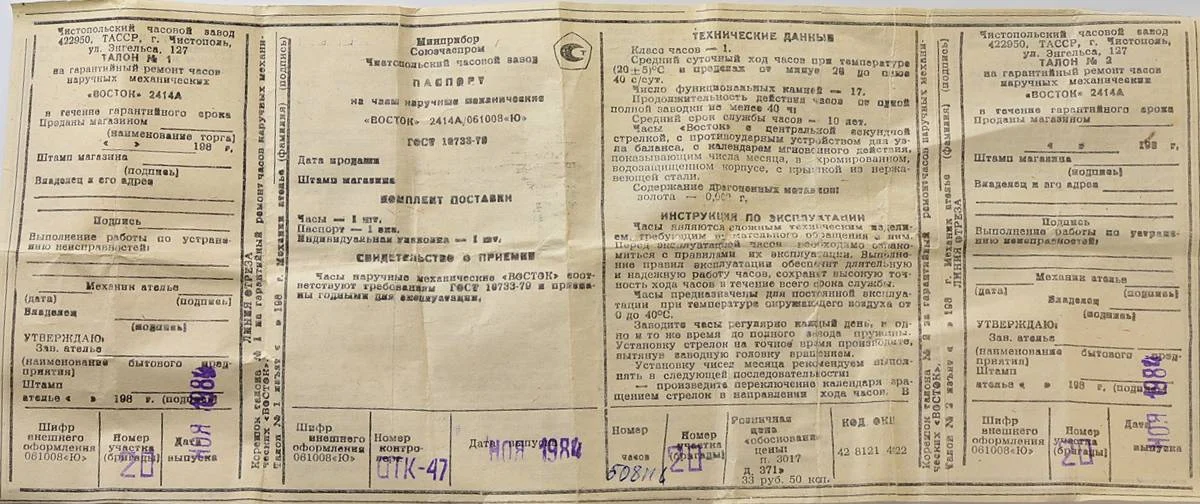 Чистопольский часовой завод
422950, ТАССР, г. Чистополь,
ул. Энгельса, 127
ТАЛОН № 1
на гарантийный ремонт часов
наручных механических
«ВОСТОК» 2414А
в течение гарантийного срока
Проданы магазином
(наименование торга)
« » 198 г.
Штамп магазина
(подпись)
Владелец и его адрес
Подпись
Выполнение работы по устра-
нению неисправностей:
Механик ателье
(дата) (подпись)
Владелец
(подпись)
УТВЕРЖДАЮ:
Зав. ателье
(наименование бытового пред-
приятия)
Штамп
ателье « » 198 г. (подпись)
Шифр
внешнего
оформления
061008«Ю»
Номер
участка
(бригады)
20
Дата
выпуска
НОЯ 1984
ЛИНИЯ ОТРЕЗА
Корешок талона № 1 на гарантийный ремонт часов наручных механи-
ческих «ВОСТОК».
Талон № 1 изъят « » 198 г. Механик ателье (фамилия) (подпись)
Минприбор
Союзчаспром
Чистопольский часовой завод
ПАСПОРТ
на часы наручные механические
«ВОСТОК» 2414А/061008«Ю»
ГОСТ 10733-79
Дата продажи
Штамп магазина
КОМПЛЕКТ ПОСТАВКИ
Часы — 1 шт.
Паспорт — 1 экз.
Индивидуальная упаковка — 1 шт.
СВИДЕТЕЛЬСТВО О ПРИЕМКЕ
Часы наручные механические «ВОСТОК» соот-
ветствуют требованиям ГОСТ 10733-79 и призна-
ны годными для эксплуатации.
Шифр
внешнего
оформления
061008«Ю»
Номер
контро-
ОТК-47
Дата выпуска
НОЯ 1984
ТЕХНИЧЕСКИЕ ДАННЫЕ
Класс часов — 1.
Средний суточный ход часов при температуре
(20±5)°С в пределах от минус 20 до плюс
40 с/сут.
Число функциональных камней — 17.
Продолжительность действия часов от одной
полной заводки не менее 40 ч.
Средний срок службы часов — 10 лет.
Часы «Восток» с центральной секундной
стрелкой, с противоударным устройством для уз-
ла баланса, с календарем мгновенного действия,
показывающим числа месяца, в хромированном,
водозащищенном корпусе, с крышкой из нержа-
веющей стали.
Содержание драгоценных металлов:
золота — г.
ИНСТРУКЦИЯ ПО ЭКСПЛУАТАЦИИ
Часы являются сложным техническим издели-
ем, требующим внимательного обращения с ним.
Перед эксплуатацией часов необходимо ознако-
миться с правилами их эксплуатации. Выполне-
ние правил эксплуатации обеспечит длительную
и надежную работу часов, сохранит высокую точ-
ность хода часов в течение всего срока службы.
Часы предназначены для постоянной эксплуа-
тации при температуре окружающего воздуха от
0 до 40°С.
Заводите часы регулярно каждый день, в од-
но и то же время до полного завода пружины.
Установку стрелок на точное время производите,
вытянув заводную головку вращением.
Установку чисел месяца рекомендуем выпол-
нять в следующей последовательности:
— произведите переключение календаря вра-
щением стрелок в направлении хода часов. В
Номер
часов
Номер
участка
(бригады)
20
Розничная
цена
«обоснование
цены»
п. 3017
д. 371»
33 руб. 50 коп.
КОД ОКП
42 8121 4422
Корешок талона № 2 на гарантийный ремонт часов наручных механи-
ческих «ВОСТОК».
Талон № 2 изъят « » 198 г. Механик ателье (фамилия) (подпись)
ЛИНИЯ ОТРЕЗА
Чистопольский часовой завод
422950, ТАССР, г. Чистополь,
ул. Энгельса, 127
ТАЛОН № 2
на гарантийный ремонт часов
наручных механических
«ВОСТОК» 2414А
в течение гарантийного срока
Проданы магазином
« » 198 г.
Штамп магазина
(подпись)
Владелец и его адрес
Подпись
Выполнение работы по устране-
нию неисправностей:
Механик ателье
(дата) (подпись)
Владелец
(подпись)
УТВЕРЖДАЮ:
Зав. ателье
(наименование бытового пред-
приятия)
Штамп
ателье « » 198 г. (подпись)
Шифр
внешнего
оформления
061008«Ю»
Номер
участка
(бригады)
20
Дата
выпуска
НОЯ 1984